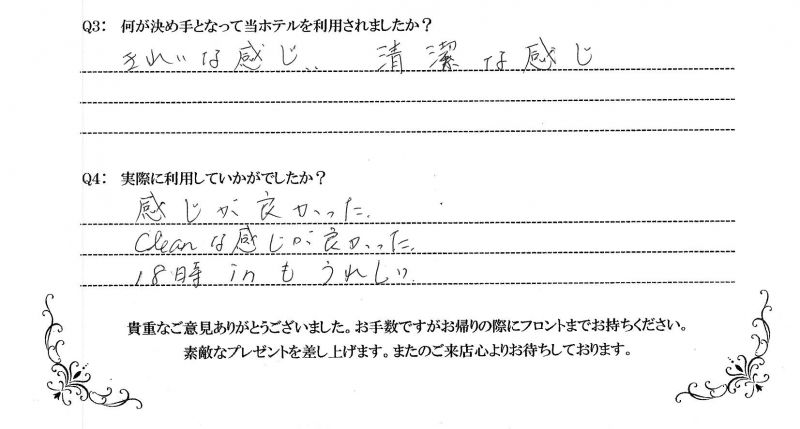 Q3: 何が決め手となって当ホテルを利用されましたか？
きれいな感じ、、 清潔な感じ
Q4: 実際に利用していかがでしたか？
感じが良かった.
cleanな感じが良かった.
18時inもうれしい.
貴重なご意見ありがとうございました。お手数ですがお帰りの際にフロントまでお持ちください。
素敵なプレゼントを差し上げます。またのご来店心よりお待ちしております。